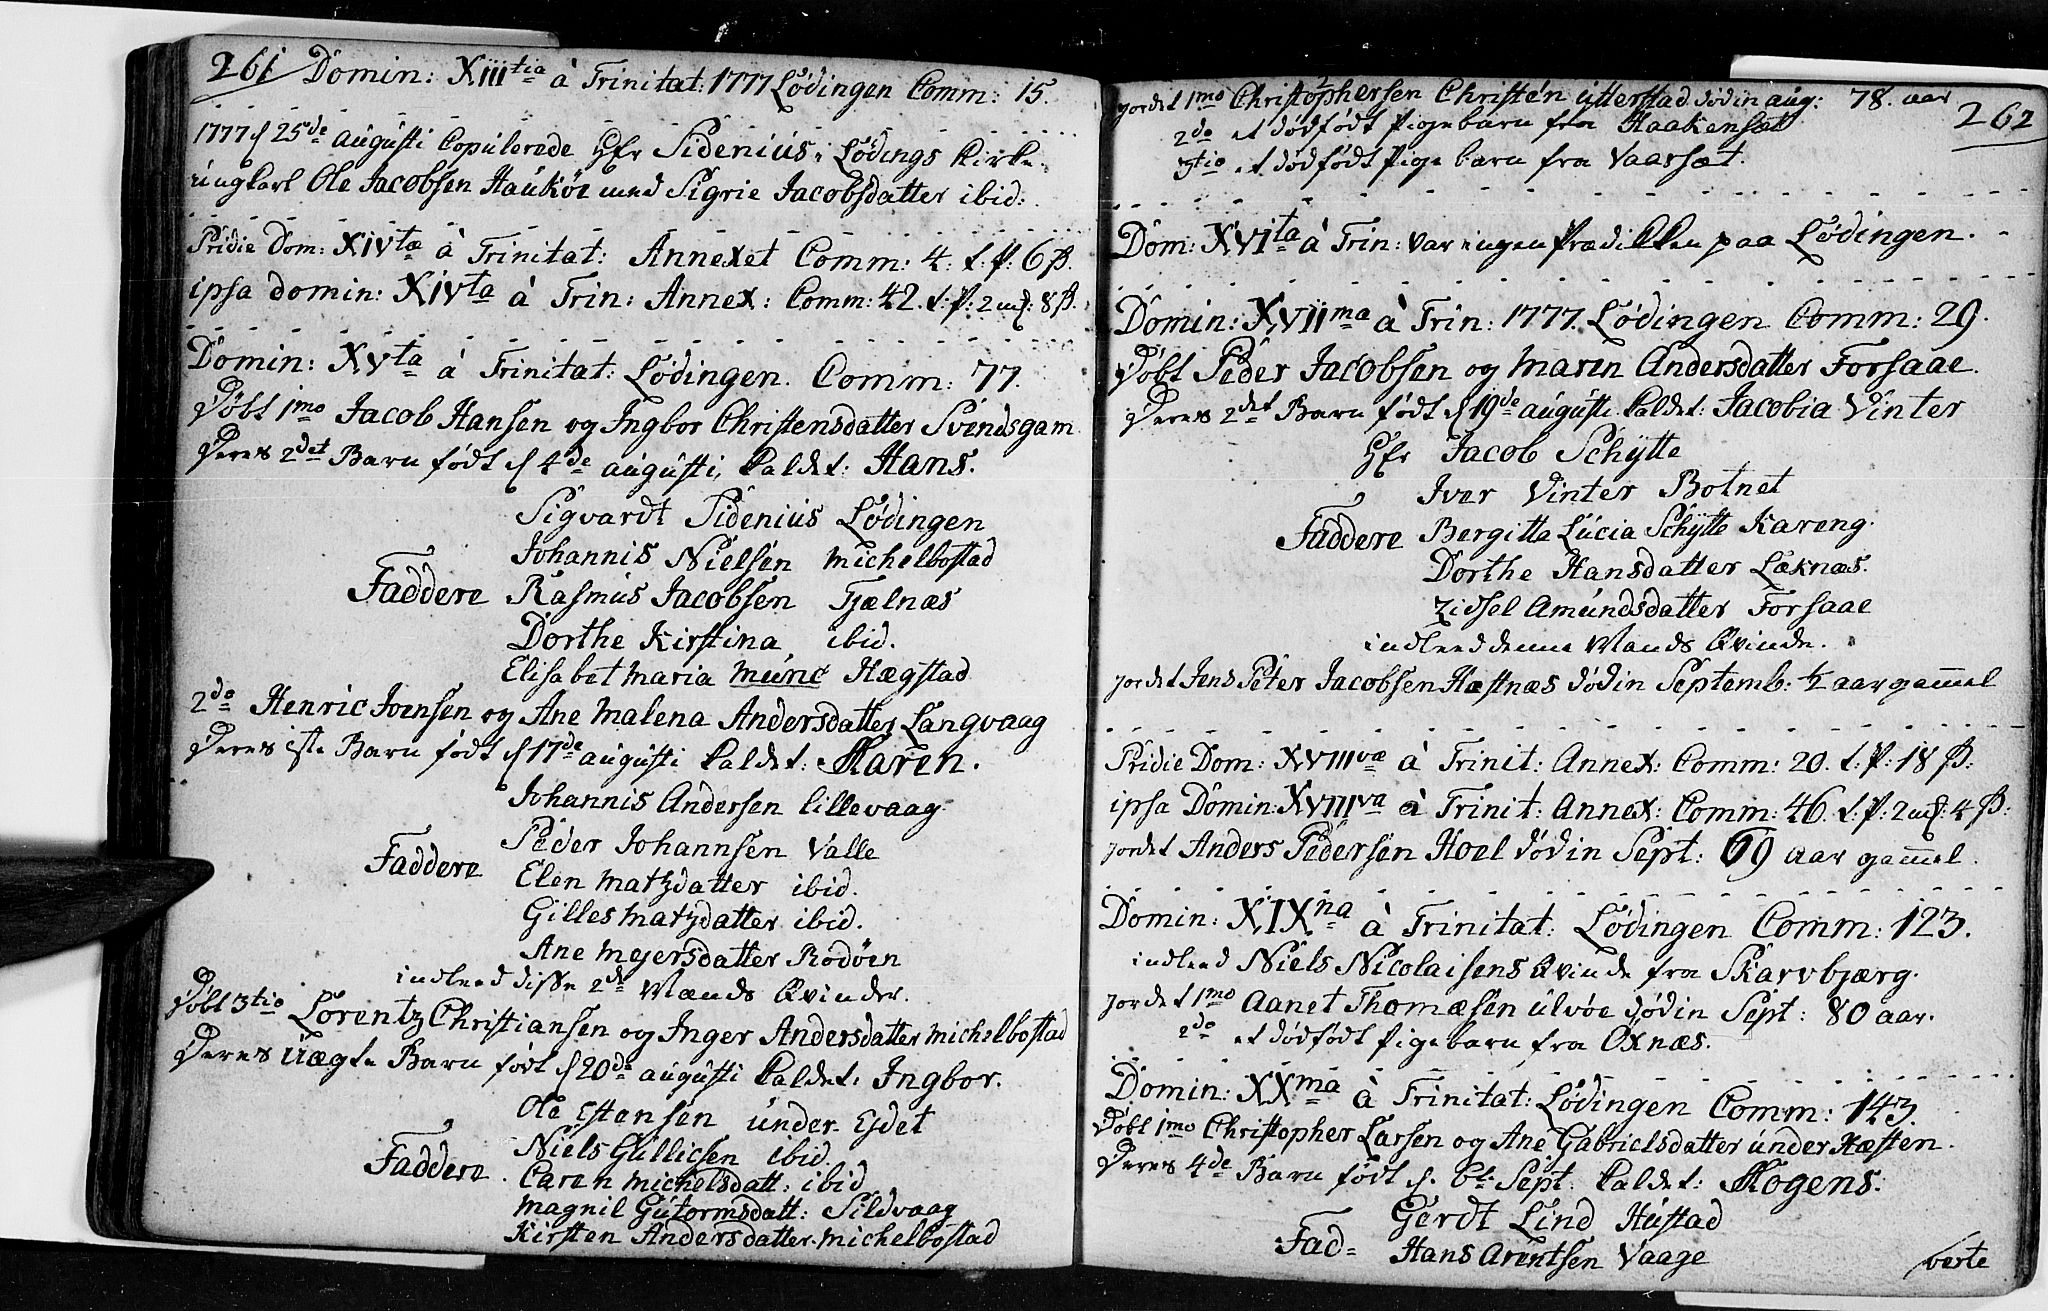 261 Domin: XIII tia â Trinitat: 1777 Lødingen Comm: 15.
1777 d 25de augusti Copulerede Hr Sidenius i Lødings Kirke
ungkarl Ole Jacobsen Haukøe med Sigrie Jacobsdatter ibid:
Pridie Dom: XIVtæ â Trinitat: Annexet Comm: 4. t: P: 6 ß.
ipsa domin: XIVta â Trin: Annex: Comm: 42. t: P: 2 mf: 8 ß.
Domin: XVta â Trinitat: Lødingen. Comm: 77.
Døbt 1mo Jacob Hansen og Ingbor Christensdatter Svendsgam
Deres 2det Barn født d 4de augusti, kaldet: Hans.
Sigvardt Sidenius Lødingen
Johannis Nielsen michelbostad
Faddere Rasmus Jacobsen Tjælnæs
Dorthe Kirstina ibid.
Elisabet maria munc Hægstad
2do Henric Joensen og Ane Malena Andersdatter Langvaag
Deres 1ste Barn født d 17de augusti kaldet: Maren.
Johannis Andersen lillevaag
Peder Johannsen Valle
Faddere Elen Matzdatter ibid.
Gilles matzdatter ibid.
Ane Mejersdatter Rodøen
indleed disse 2de Mænds Qvinder.
Døbt 3tio Lorentz Christiansen og Inger Andersdatter michelbostad
Deres uægte Barn født d 20de augusti kaldet: Ingbor.
Ole Estensen under Ejdet
Niels Gullicsen ibid
Faddere. Caren michelsdatt: ibid
magnil Gutormsdatt: Sildvaag
Kirsten Andersdatter michelbostad
jordet 1mo Christophersen Christen ytterstad død in aug: 78. aar
262
2do et dødfødt Pigebarn fra Haakensæt
3tio et dødfødt Pige barn fra Vaarsæt.
Dom: XVIta â Trin: var ingen Prædikken paa Lødingen.
Domin: XVII ma â Trin: 1777. Lødingen Comm: 29.
Døbt Peder Jacobsen og Maren Andersdatter Forsaae.
Deres 2det Barn født d 19de augusti kaldet: Jacobia Vinter
Hr Jacob Schytte
Iver Vinter Botnet
Faddere Bergitta Lucia Schytte Kareng.
Dorthe Hansdatter Læknæs.
Zidsel Amundsdatter Forsaae
indleed denne Mands Qvinde.
jordet Jens Peter Jacobsen Hæstnæs død in Septemb: ½ aar gammel
Pridie Dom: XVIIIvæ â Trinit: Annex: Comm: 20. t: P: 18 ß:
ipsa Domin: XVIIIva â Trinit: Annex: Comm: 46. t: P: 2 mf: 4 ß:
jordet Anders Pedersen Hoel død in Sept: 69 aar gammel.
Domin: XIXna â Trinitat: Lødingen Comm: 123.
indleed Niels Nicolaisens Qvinde fra Skarvbjærg.
jordet 1mo Aanet Thomæsen ulvøe død in Sept: 80 aar.
2do et dødfødt Pigebarn fra Oxnæs.
Domin: XXma â Trinitat: Lødingen Comm: 143.
Døbt 1mo Christopher Larsen og Ane Gabrielsdatter under Næsten.
Deres 4de Barn født d. 6t: Sept. kaldet: Mogens.
Gerdt Lind Hustad
Fad= Hans Arentsen Vaage
verte